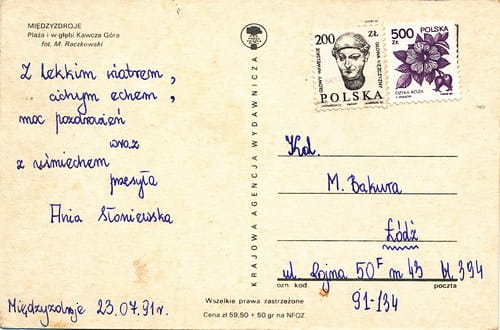 MIĘDZYZDROJE
Plaża i w głębi Kawcza Góra
fot. M. Raczkowski
Z lekkim wiatrem,
cichym echem,
moc pozdrowień
wraz
z uśmiechem
przesyła
Ania Słoniewska
Międzyzdroje 23.07.91r.
KRAJOWA AGENCJA WYDAWNICZA
200 ZŁ
POLSKA
500 ZŁ
POLSKA
DZIKA RÓŻA
Kol.
M. Bakura
Łódź
ul. Rojna 50F m 43 bl. 394
ozn. kod.
poczta
91-134
Wszelkie prawa zastrzeżone
Cena zł 59,50 + 50 gr na NFOZ